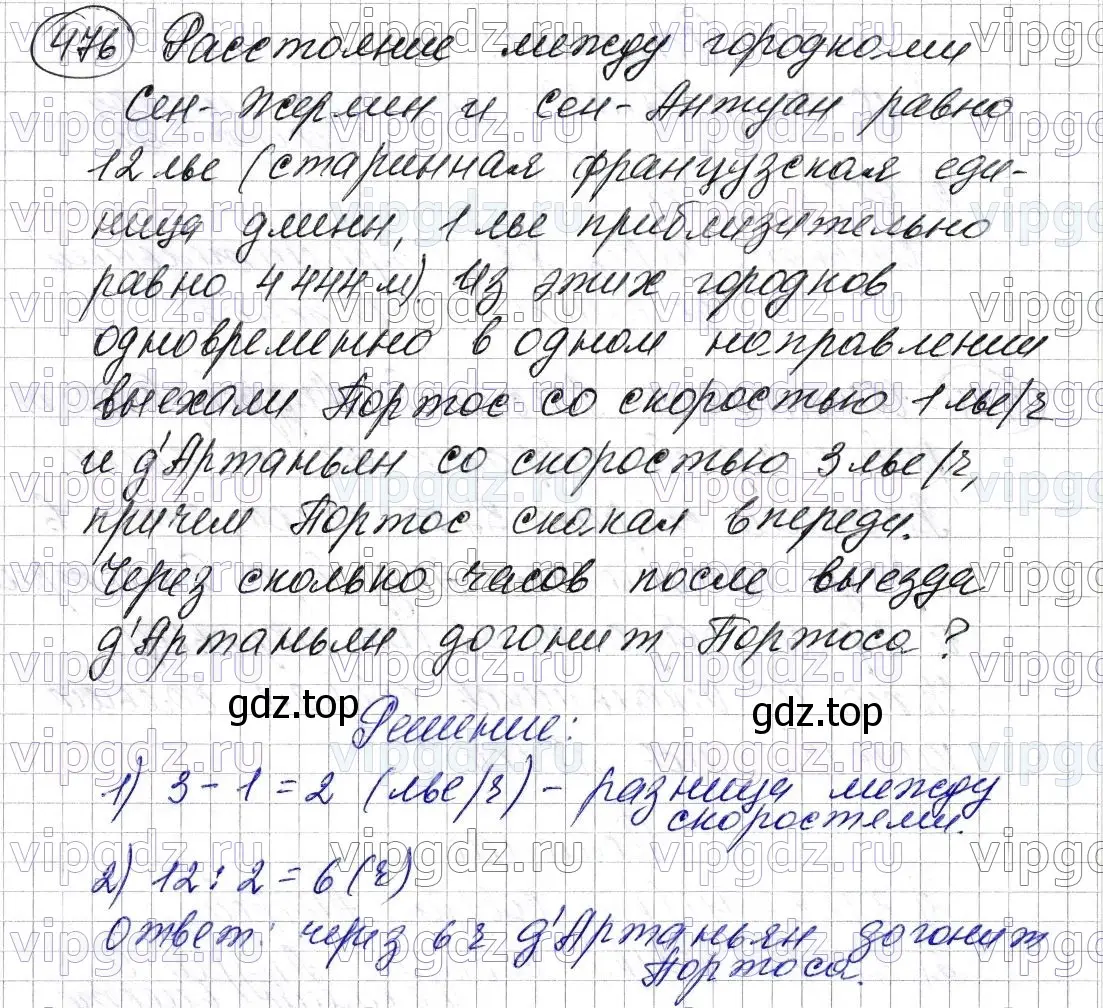 476 Расстояние между городками
Сен-Жермен и Сен-Антуан равно
12 лье (старинная французская еди-
ница длины, 1 лье приблизительно
равно 4 444 м). Из этих городков
одновременно в одном направлении
выехали Портос со скоростью 1 лье/ч
и д'Артаньян со скоростью 3 лье/ч,
причем Портос скакал впереди.
Через сколько часов после выезда
д'Артаньян догонит Портоса?
gdz.top
gdz.top
Решение:
1) 3 - 1 = 2 (лье/ч) - разница между
скоростями.
2) 12 : 2 = 6 (ч)
Ответ: через 6 ч д'Артаньян догонит
Портоса.
vipgdz.ru